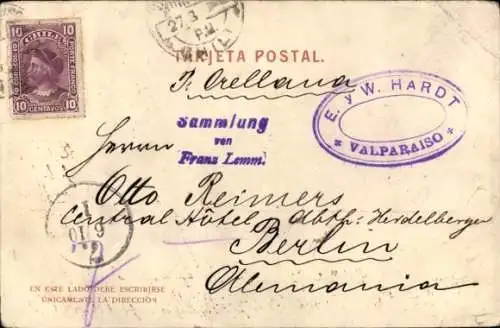 10 CHILE 10
COLON PORTE FRANCO
10 CENTAVOS 10
27.3
P.M.
TARJETA POSTAL.
P. Orellana
E. y W. HARDT
* VALPARAISO *
Sammlung
von
Franz Lemm.
Herrn
Otto Reimers
Central Hôtel Abth: Heidelberger
Berlin
Alemania
EN ESTE LADO DEBE ESCRIBIRSE
ÚNICAMENTE LA DIRECCIÓN